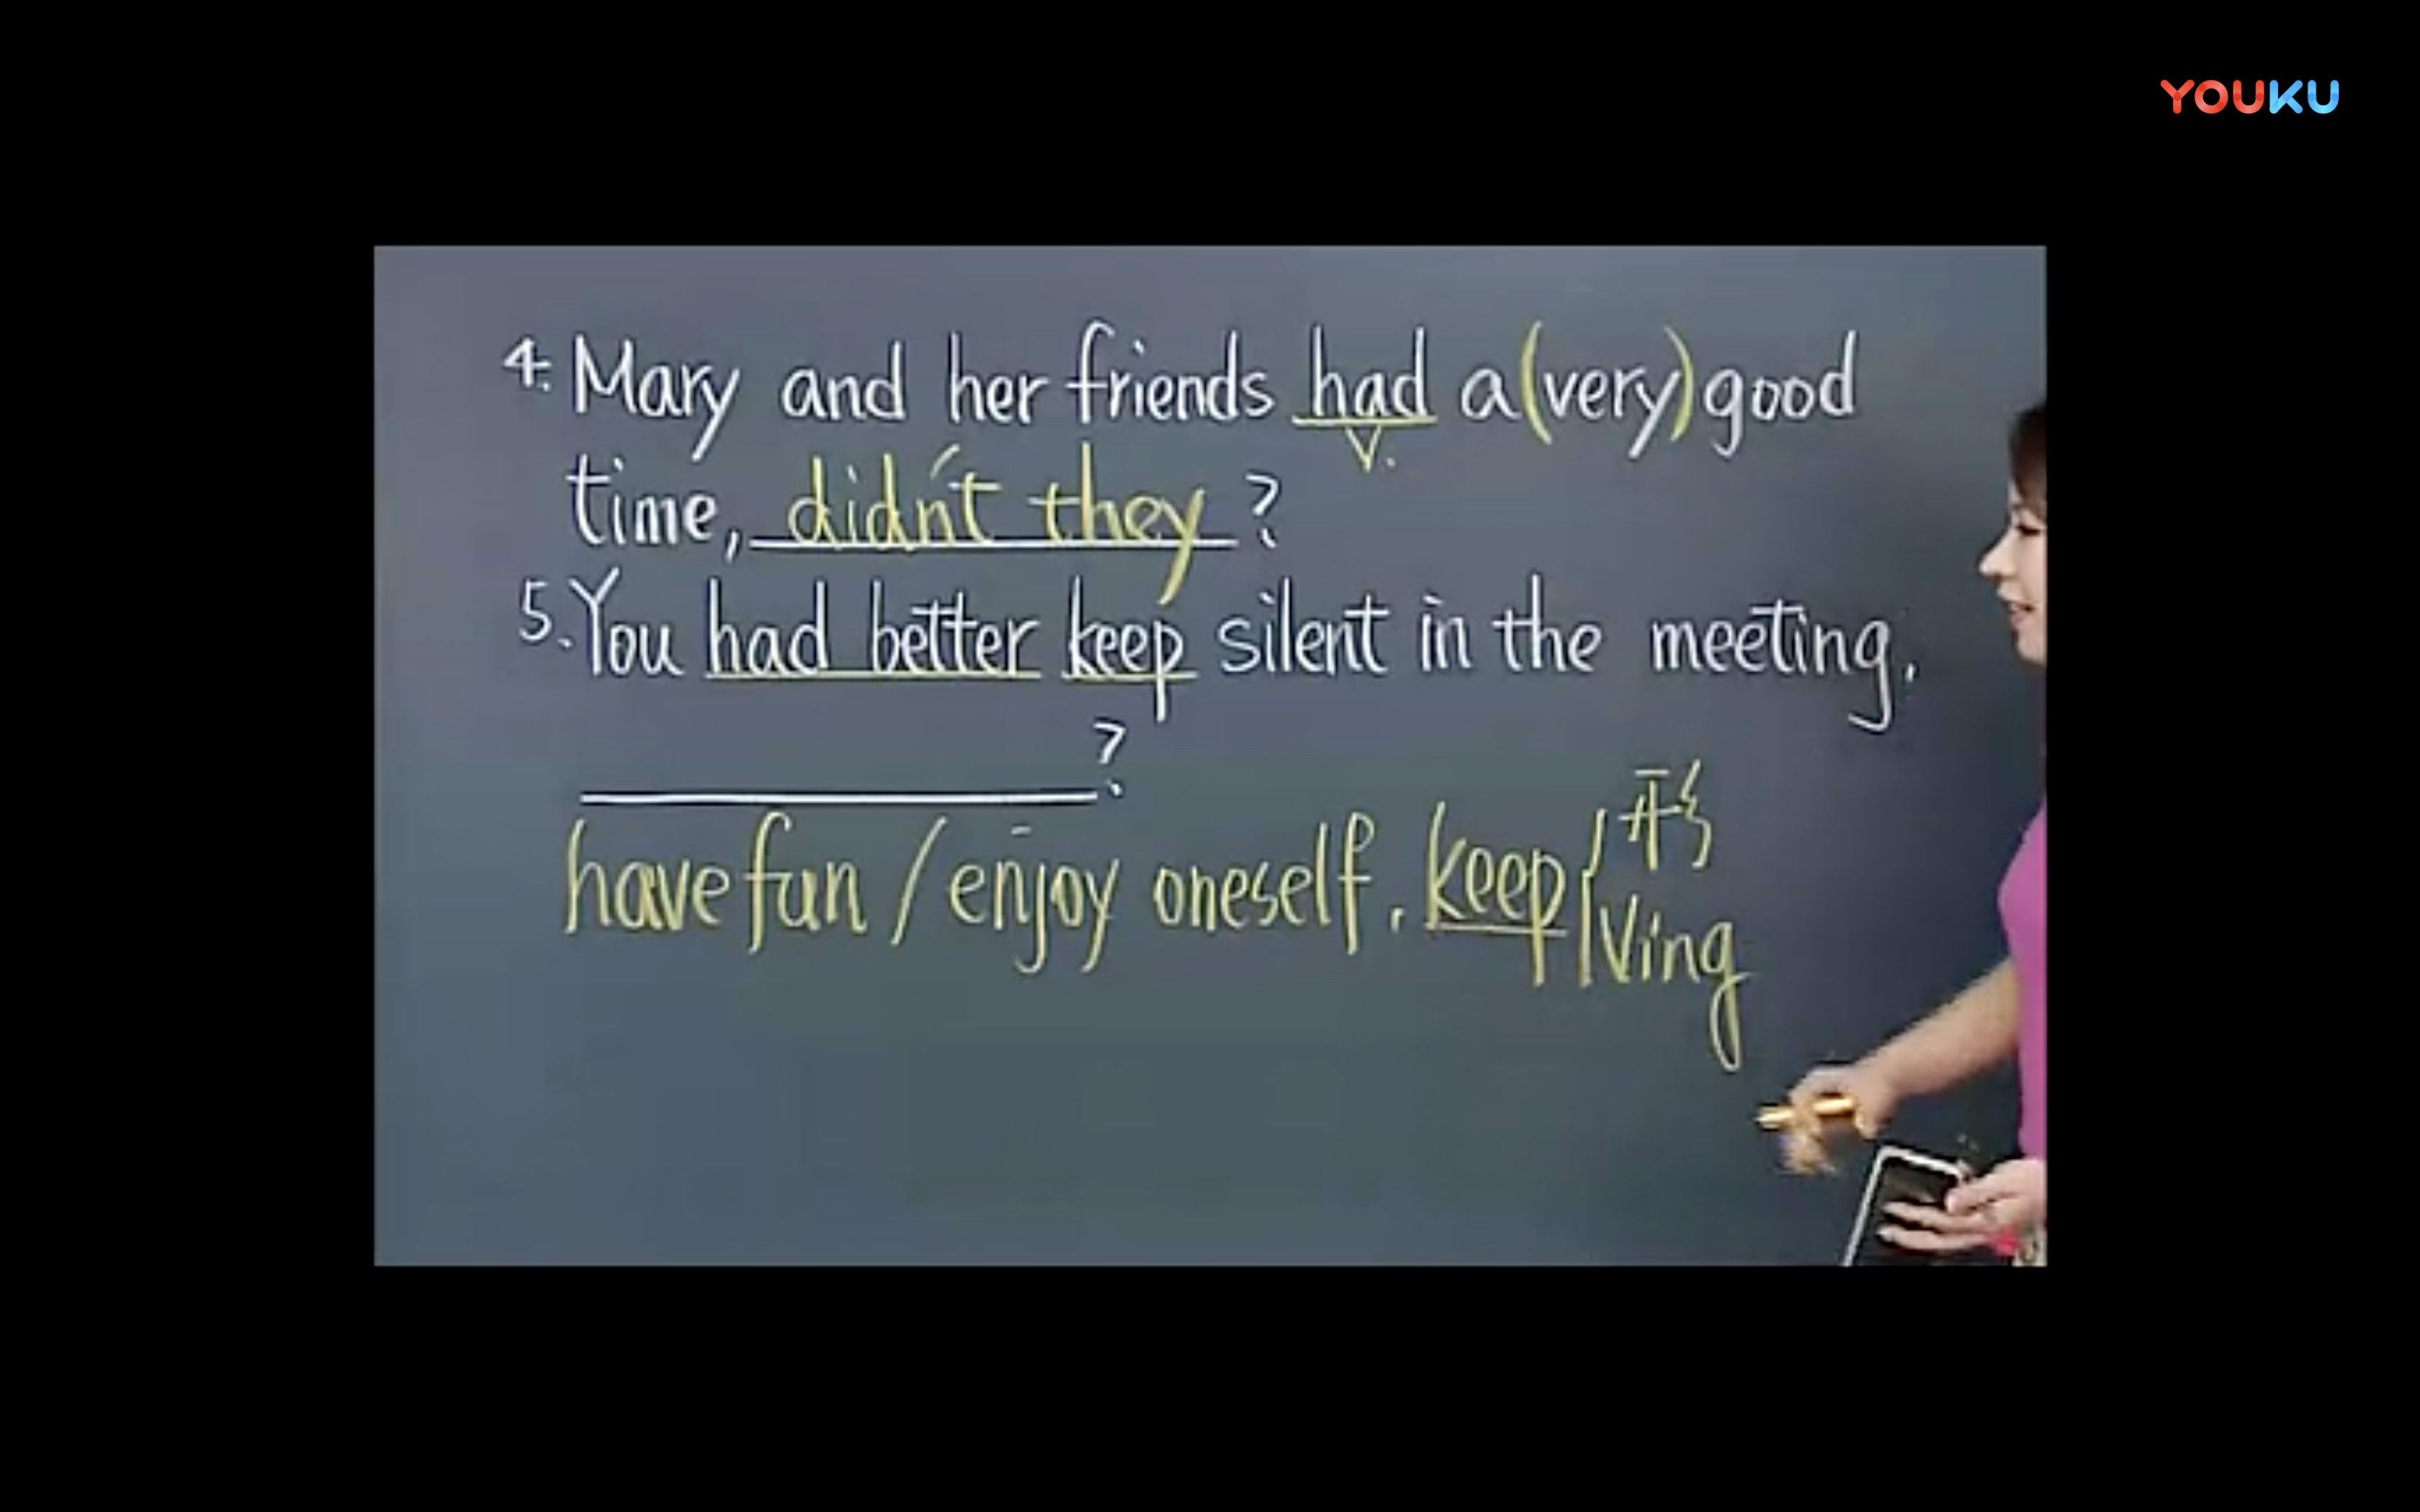 YOUKU
4. Mary and her friends had a (very) good
v.
time, didn't they ?
5. You had better keep silent in the meeting,
?
have fun / enjoy oneself. keep { 形
Ving